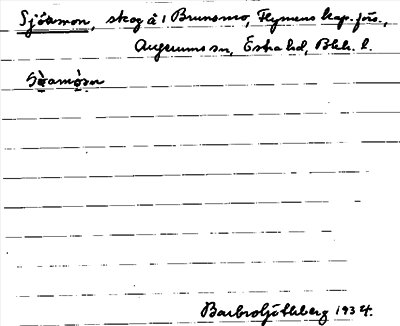 Sjöamon, skog å 1 Brunsmo, Flymens kap. förs.,
Augerums sn, Östra hd, Blek. l.
Barbro Ljötheberg 1934.